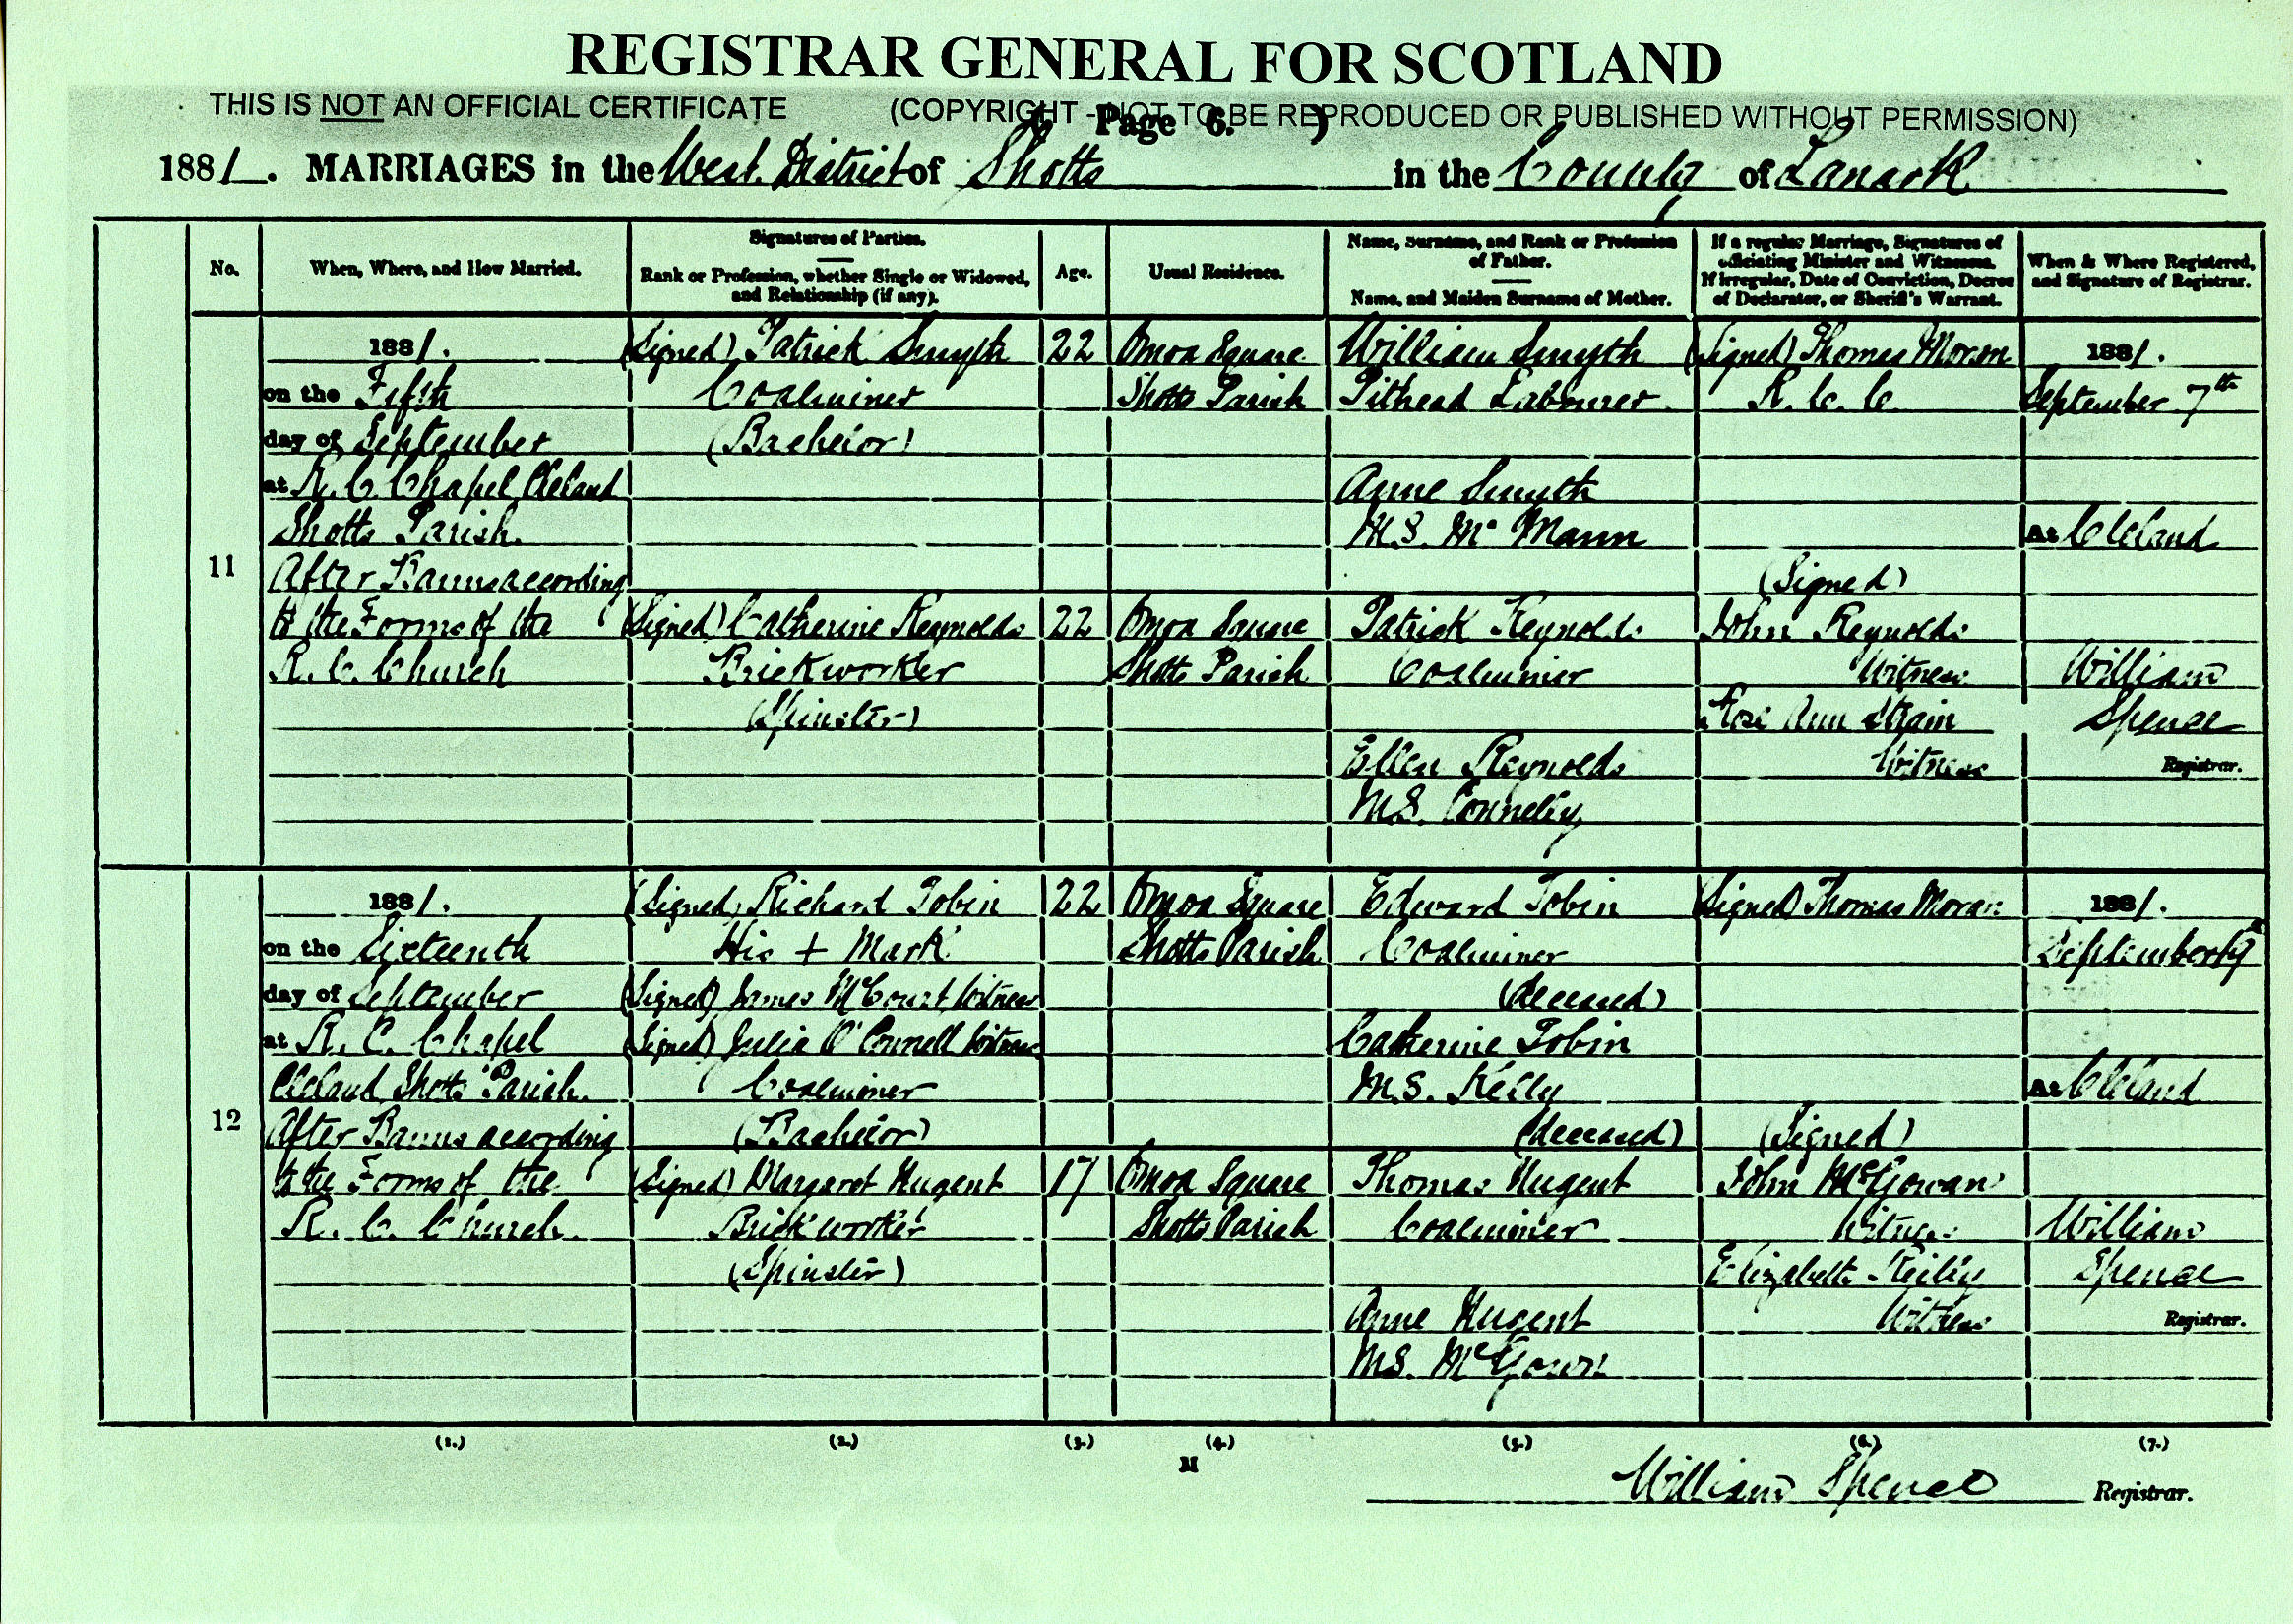 REGISTRAR GENERAL FOR SCOTLAND
THIS IS NOT AN OFFICIAL CERTIFICATE (COPYRIGHT - NOT TO BE REPRODUCED OR PUBLISHED WITHOUT PERMISSION)
Page 6.
1881. MARRIAGES in the West District of Shotts in the County of Lanark
No.
When, Where, and How Married.
Signatures of Parties.
Rank or Profession, whether Single or Widowed,
and Relationship (if any).
Age.
Usual Residence.
Name, Surname, and Rank or Profession
of Father.
Name, and Maiden Surname of Mother.
If a regular Marriage, Signatures of
officiating Minister and Witnesses.
If irregular, Date of Conviction, Decree
of Declarator, or Sheriff's Warrant.
When & Where Registered,
and Signature of Registrar.
11
1881.
on the Fifth
day of September
at R. C. Chapel Cleland
Shotts Parish.
After Banns according
to the Forms of the
R. C. Church
(Signed) Patrick Smyth
Coalminer
(Bachelor)
(Signed) Catherine Reynolds
Brickworker
(Spinster)
22
22
Omoa Square
Shotts Parish
Omoa Square
Shotts Parish
William Smyth
Pithead Labourer
Anne Smyth
M.S. Mc Mann
Patrick Reynolds
Coalminer
Ellen Reynolds
M.S. Connelly
(Signed) Thomas Moran
R. C. C.
(Signed)
John Reynolds
Witness
Rose Ann Strain
Witness
1881.
September 7th
At Cleland
William
Spence
Registrar.
12
1881.
on the Sixteenth
day of September
at R. C. Chapel
Cleland Shotts Parish.
After Banns according
to the Forms of the
R. C. Church.
(Signed) Richard Tobin
His + Mark
(Signed) James McCourt Witness
(Signed) Julia O'Connell Witness
Coalminer
(Bachelor)
(Signed) Margaret Nugent
Brickworker
(Spinster)
22
17
Omoa Square
Shotts Parish
Omoa Square
Shotts Parish
Edward Tobin
Coalminer
(deceased)
Catherine Tobin
M.S. Kelly
(deceased)
Thomas Nugent
Coalminer
Anne Nugent
M.S. McGowan
(Signed) Thomas Moran
(Signed)
John McGowan
Witness
Elizabeth Reilly
Witness
1881.
September
At Cleland
William
Spence
Registrar.
(1.) (2.) (3.) (4.) (5.) (6.) (7.)
M
William Spence Registrar.